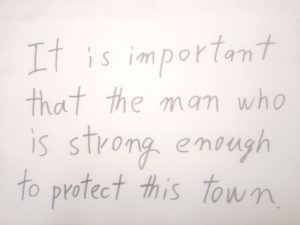 It is important
that the man who
is strong enough
to protect this town.